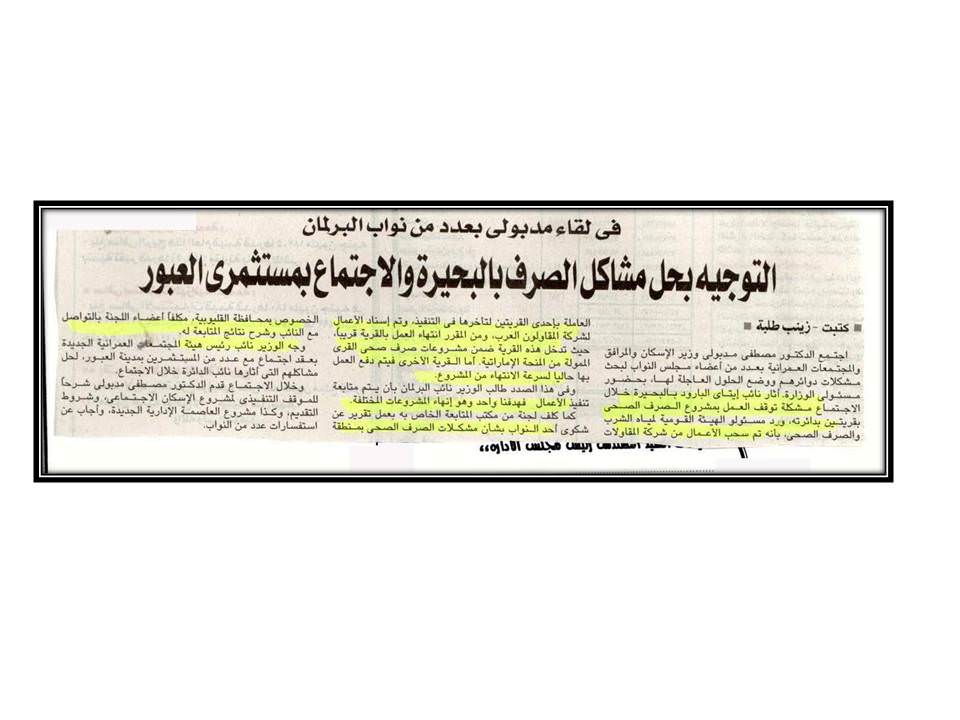 فى لقاء مدبولى بعدد من نواب البرلمان
التوجيه بحل مشاكل الصرف بالبحيرة والاجتماع بمستثمرى العبور
كتبت - زينب طلبة
اجتمع الدكتور مصطفى مدبولى وزير الإسكان والمرافق
والمجتمعات العمرانية بعدد من أعضاء مجلس النواب لبحث
مشكلات دوائرهم ووضع الحلول العاجلة لها، بحضور
مسئولى الوزارة. أثار نائب إيتاى البارود بالبحيرة خلال
الاجتماع مشكلة توقف العمل بمشروع الصرف الصحى
بقريتين بدائرته، ورد مسئولو الهيئة القومية لمياه الشرب
والصرف الصحى، بأنه تم سحب الأعمال من شركة المقاولات
العاملة بإحدى القريتين لتأخرها فى التنفيذ، وتم إسناد الأعمال
لشركة المقاولون العرب، ومن المقرر انتهاء العمل بالقرية قريباً،
حيث تدخل هذه القرية ضمن مشروعات صرف صحى القرى
الممولة من المنحة الإماراتية. أما القرية الأخرى فيتم دفع العمل
بها حالياً لسرعة الانتهاء من المشروع.
وفى هذا الصدد طالب الوزير نائب البرلمان بأن يتم متابعة
تنفيذ الأعمال فهدفنا واحد وهو إنهاء المشروعات المختلفة.
كما كلف لجنة من مكتب المتابعة الخاص به بعمل تقرير عن
شكوى أحد النواب بشأن مشكلات الصرف الصحى بمنطقة
الخصوص بمحافظة القليوبية، مكلفاً أعضاء اللجنة بالتواصل
مع النائب وشرح نتائج المتابعة له.
وجه الوزير نائب رئيس هيئة المجتمعات العمرانية الجديدة
بعقد اجتماع مع عدد من المستثمرين بمدينة العبور، لحل
مشاكلهم التى أثارها نائب الدائرة خلال الاجتماع.
وخلال الاجتماع قدم الدكتور مصطفى مدبولى شرحاً
للموقف التنفيذى لمشروع الإسكان الاجتماعى، وشروط
التقديم، وكذا مشروع العاصمة الإدارية الجديدة، وأجاب عن
استفسارات عدد من النواب.
رئيس مجلس الادارة،،